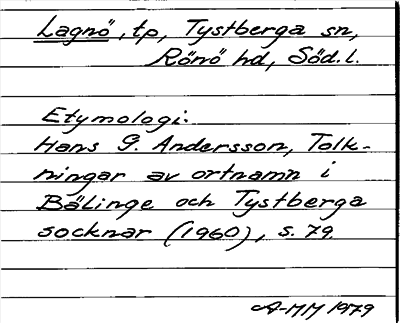 Lagnö, tp, Tystberga sn,
Rönö hd, Söd. l.
Etymologi:
Hans G. Andersson, Tolk-
ningar av ortnamn i
Bälinge och Tystberga
socknar (1960), s. 79.
A-MM 1979